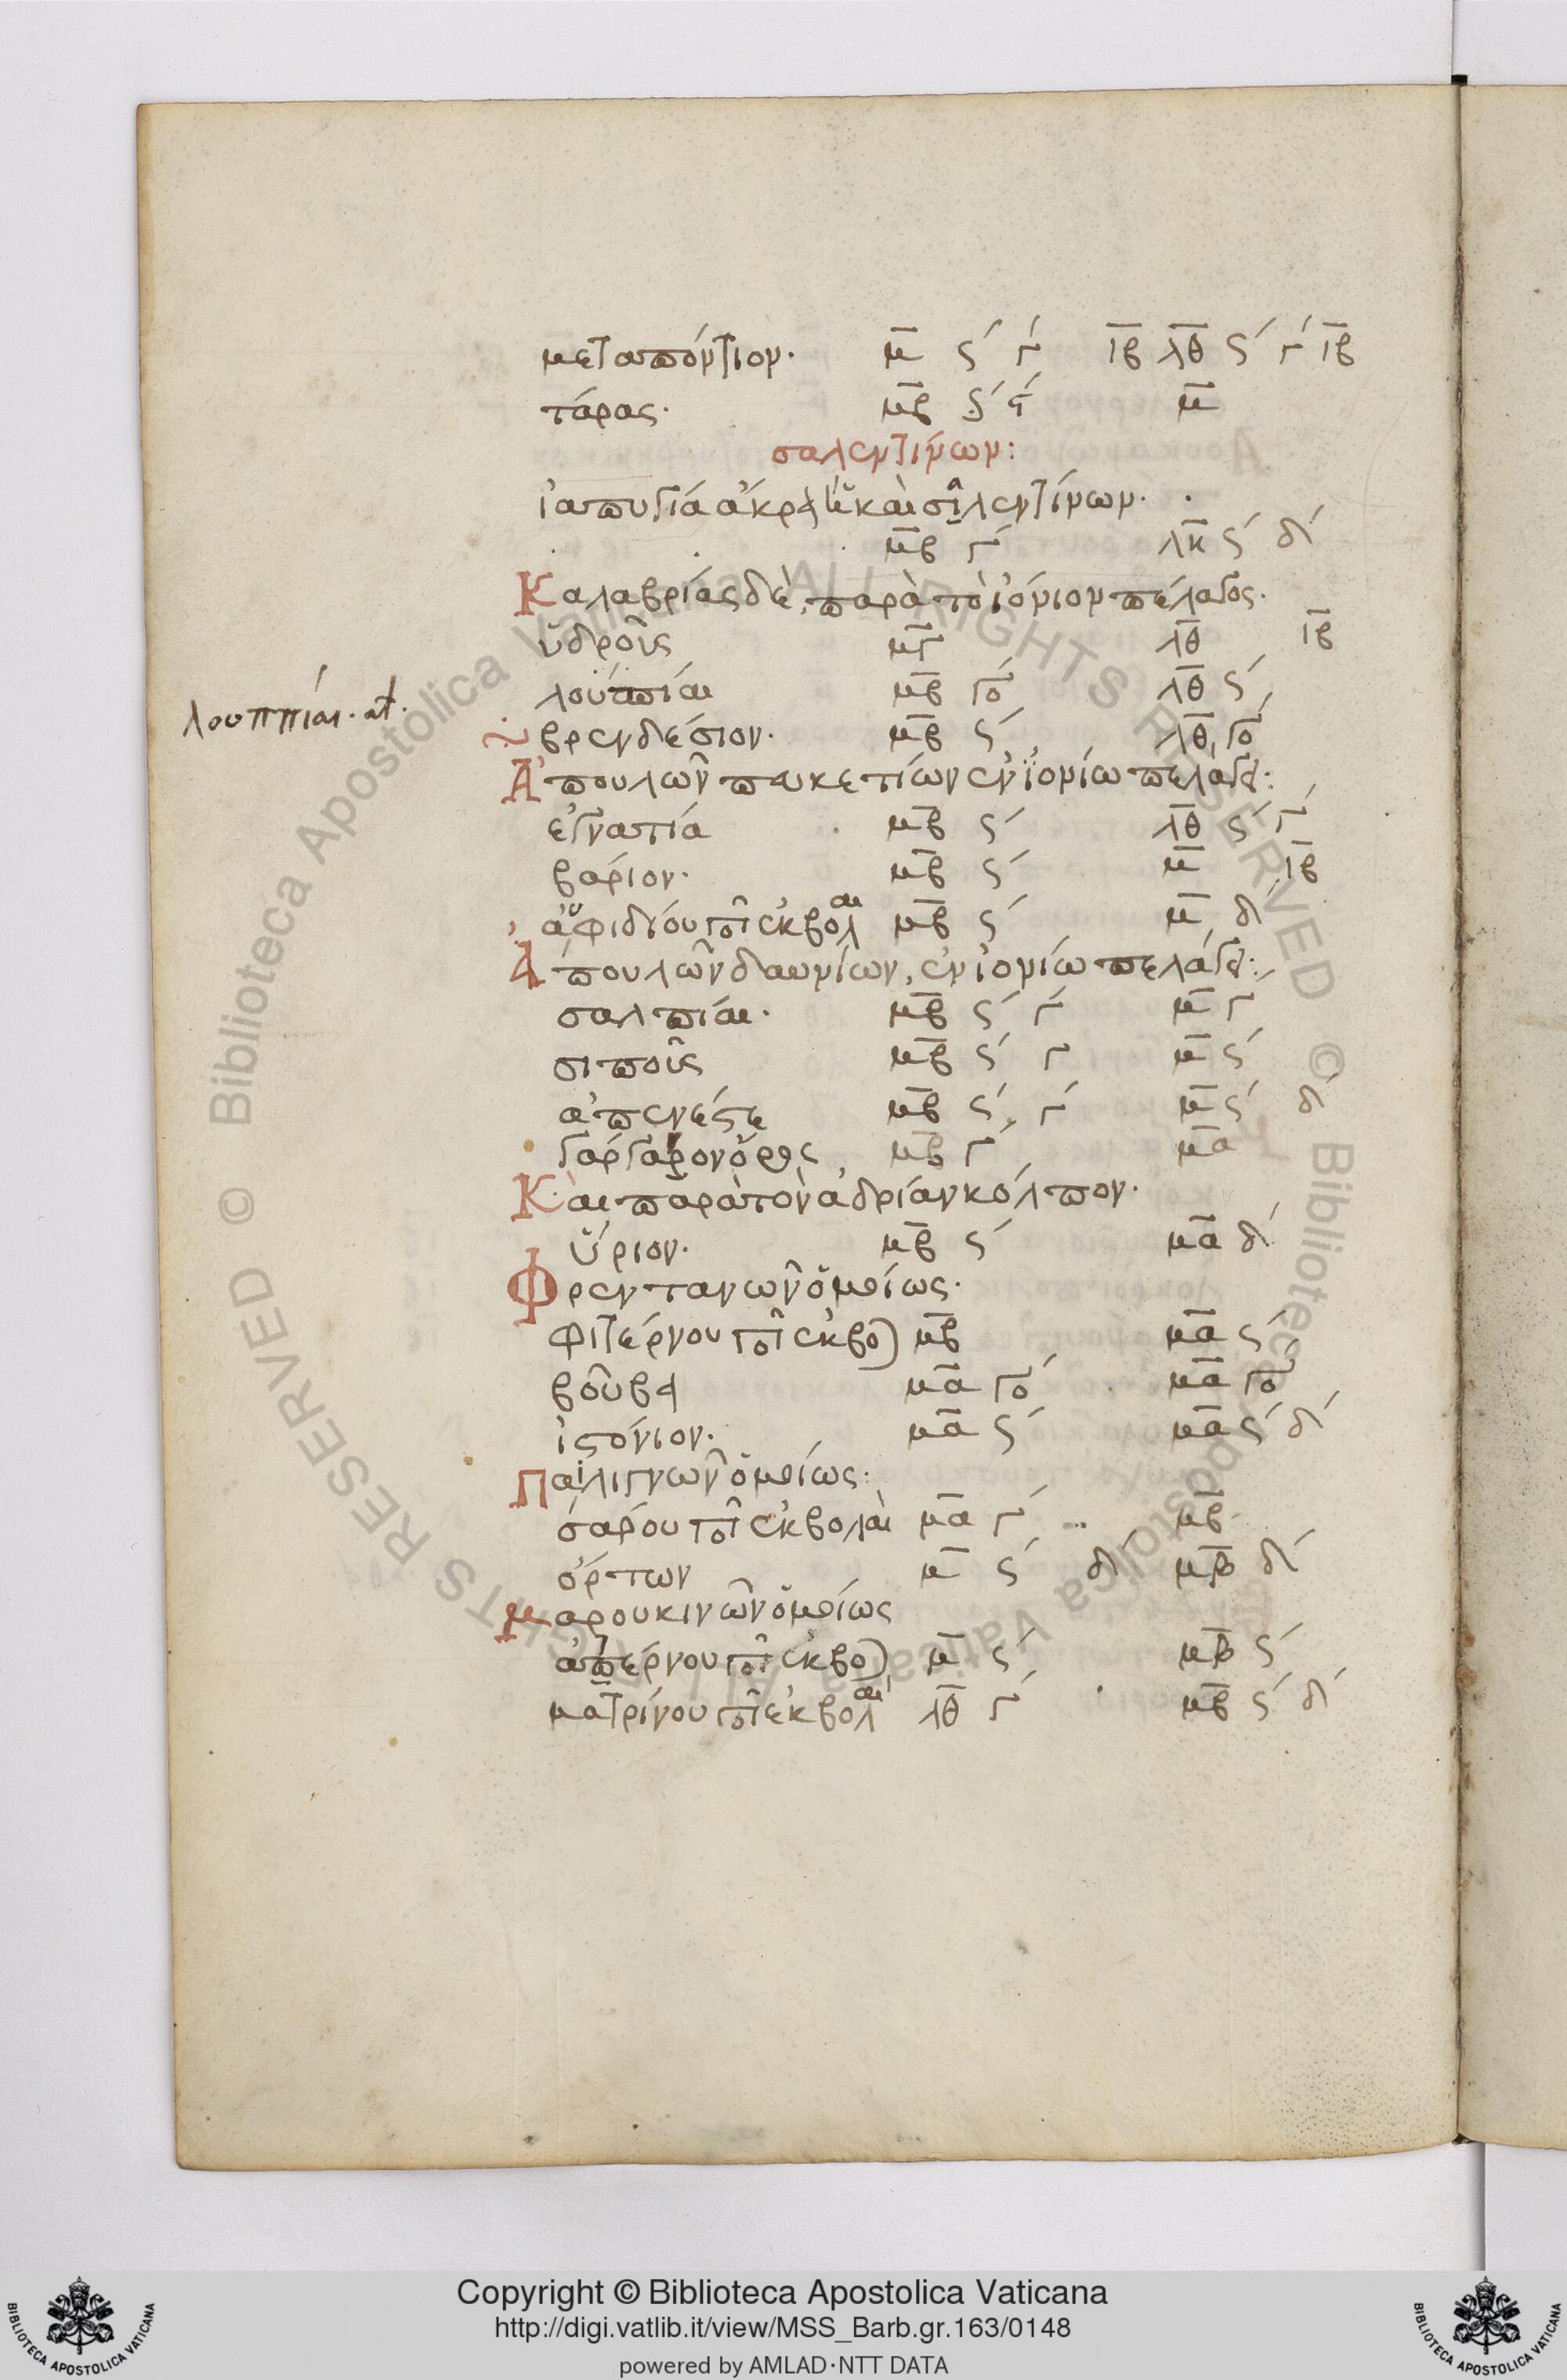 μεταπόντιον. μ̅ ς´ γ´ ιβ̅ λθ̅ ς´ γ´ ιβ̅
τάρας. μβ̅ μ̅
σαλεντίνων:
ἰαπυγία ἄκρα ἡ καὶ σαλεντίνων.
μβ̅ γ´ ς´ δ´
Καλαβρίας δὲ, παρὰ τὸ ἰόνιον πέλαγος.
ὑδροῦς μγ̅ λθ̅ ιβ̅
λουππίαι. ἀλ. λουπίαι μβ̅ γο´ λθ̅ ς´
βρενδέσιον. μβ̅ ς´ λθ̅ γο´
Ἀπουλῶν πευκετίων ἐν ἰονίω πελάγει:
ἐγνατία μβ̅ ς´ λθ̅ ς´ γ´
βάριον. μβ̅ ς´ μ̅ ιβ̅
αὐφιδίου ποτ ἐκβολαι μβ̅ ς´ μ̅ δ´
Ἀπουλῶν δαυνίων, ἐν ἰονίω πελάγει:
σαλπίαι. μβ̅ ς´ γ´ μ̅ γ´
σιποῦς μβ̅ ς´ γ´ μ̅ ς´
ἀπενέστε μβ̅ ς´ γ´ μ̅ ς´ δ´
γάργαρον ὄρος μβ̅ γ´ μα̅
Καὶ παρὰ τὸν ἀδρίαν κόλπον.
ὕριον. μβ̅ ς´ μα̅ δ´
Φρεντανῶν ὁμοίως.
φιτέρνου ποτ ἐκβο) μβ̅ μα̅ ς´
βοῦβα μα̅ γο´ μα̅ γο´
ἱστόνιον. μα̅ ς´ μα̅ ς´ δ´
Παιλιγνῶν ὁμοίως:
σάρου ποτ ἐκβολαὶ μα̅ γ´ μβ̅
ὄρτων μ̅ ς´ δ´ μβ̅ δ´
Μαρουκινῶν ὁμοίως
ἀτέρνου ποτ ἐκβο) μ̅ ς´ μβ̅ ς´
ματρίνου ποτ ἐκβολαι λθ̅ γ´ μβ̅ ς´ δ´
© Biblioteca Apostolica Vaticana ALL RIGHTS RESERVED © Biblioteca Apostolica Vaticana ALL RIGHTS RESERVED
Copyright © Biblioteca Apostolica Vaticana
http://digi.vatlib.it/view/MSS_Barb.gr.163/0148
powered by AMLAD·NTT DATA
BIBLIOTECA APOSTOLICA VATICANA
BIBLIOTECA APOSTOLICA VATICANA